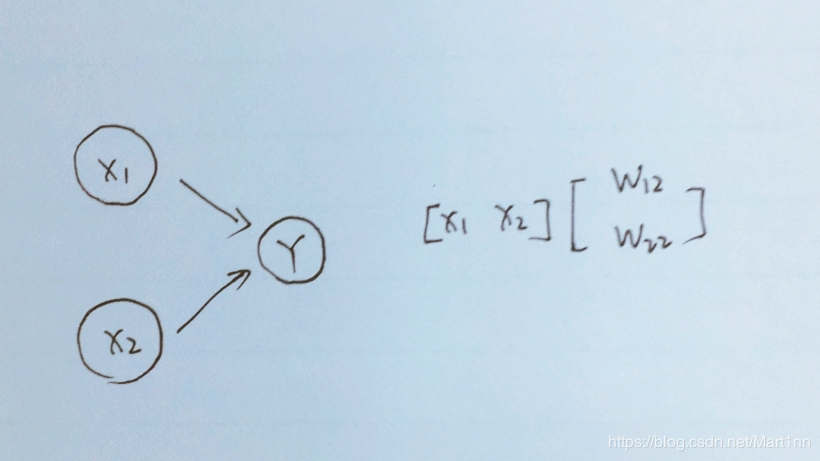 X1
X2
Y
[X1 X2] [W12
W22]
https://blog.csdn.net/Mart1nn